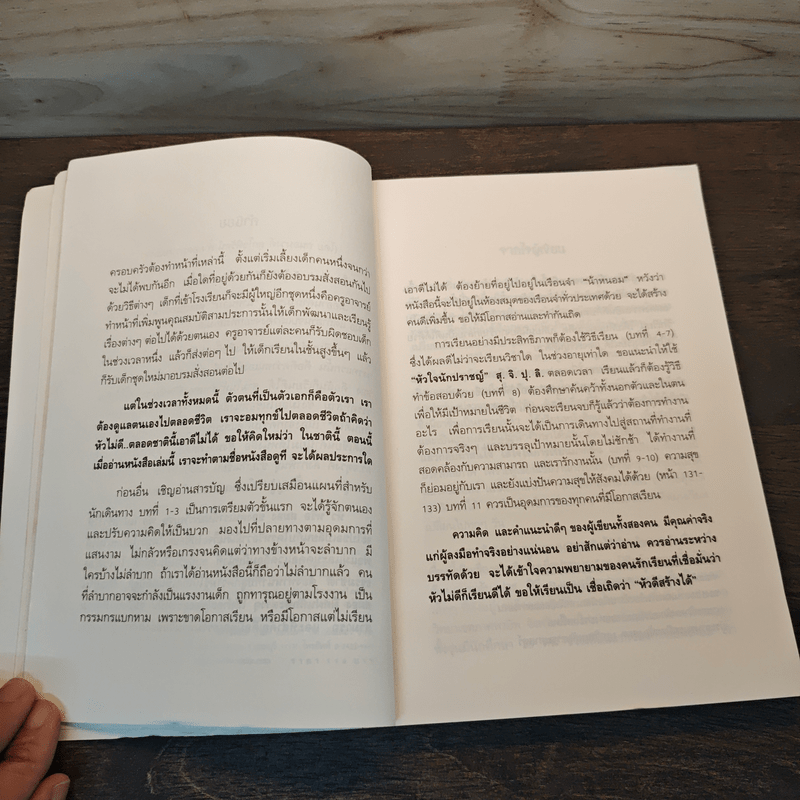 ครอบครัวต้องทำหน้าที่เหล่านี้ ตั้งแต่เริ่มเลี้ยงเด็กคนหนึ่งจนกว่า
จะไม่ได้พบกันอีก เมื่อใดที่อยู่ด้วยกันก็ยังต้องอบรมสั่งสอนกันไป
ด้วยวิธีต่างๆ เด็กที่เข้าโรงเรียนก็จะมีผู้ใหญ่อีกชุดหนึ่งคือครูอาจารย์
ทำหน้าที่เพิ่มพูนคุณสมบัติสามประการนั้นให้เด็กพัฒนาและเรียนรู้
เรื่องต่างๆ ต่อไปได้ด้วยตนเอง ครูอาจารย์แต่ละคนก็รับผิดชอบเด็ก
ในช่วงเวลาหนึ่ง แล้วก็ส่งต่อๆ ไป ให้เด็กเรียนในชั้นสูงขึ้นๆ แล้ว
ก็รับเด็กชุดใหม่มาอบรมสั่งสอนต่อไป
แต่ในช่วงเวลาทั้งหมดนี้ ตัวตนที่เป็นตัวเอกก็คือตัวเรา เรา
ต้องดูแลตนเองไปตลอดชีวิต เราจะอมทุกข์ไปตลอดชีวิตถ้าคิดว่า
หัวไม่ดี..ตลอดชาตินี้เอาดีไม่ได้ ขอให้คิดใหม่ว่า ในชาตินี้ ตอนนี้
เมื่ออ่านหนังสือเล่มนี้ เราจะทำตามชื่อหนังสือดูที จะได้ผลประการใด
ก่อนอื่น เชิญอ่านสารบัญ ซึ่งเปรียบเสมือนแผนที่สำหรับ
นักเดินทาง บทที่ 1-3 เป็นการเตรียมตัวขั้นแรก จะได้รู้จักตนเอง
และปรับความคิดให้เป็นบวก มองไปที่ปลายทางตามอุดมการที่
แสนงาม ไม่กลัวหรือเกรงจนคิดแต่ว่าทางข้างหน้าจะลำบาก มี
ใครบ้างไม่ลำบาก ถ้าเราได้อ่านหนังสือนี้ก็ถือว่าไม่ลำบากแล้ว คน
ที่ลำบากอาจจะกำลังเป็นแรงงานเด็ก ถูกทารุณอยู่ตามโรงงาน เป็น
กรรมกรแบกหาม เพราะขาดโอกาสเรียน หรือมีโอกาสแต่ไม่เรียน
เอาดีไม่ได้ ต้องย้ายที่อยู่ไปอยู่ในเรือนจำ "น้าหนอม" หวังว่า
หนังสือนี้จะไปอยู่ในห้องสมุดของเรือนจำทั่วประเทศด้วย จะได้สร้าง
คนดีเพิ่มขึ้น ขอให้มีโอกาสอ่านและทำกันเถิด
การเรียนอย่างมีประสิทธิภาพก็ต้องใช้วิธีเรียน (บทที่ 4-7)
ซึ่งได้ผลดีไม่ว่าจะเรียนวิชาใด ในช่วงอายุเท่าใด ขอแนะนำให้ใช้
"หัวใจนักปราชญ์" สุ. จิ. ปุ. ลิ. ตลอดเวลา เรียนแล้วก็ต้องรู้วิธี
ทำข้อสอบด้วย (บทที่ 8) ต้องศึกษาค้นคว้าทั้งนอกตัวและในตน
เพื่อให้มีเป้าหมายในชีวิต ก่อนจะเรียนจบก็รู้แล้วว่าต้องการทำงาน
อะไร เพื่อการเรียนนั้นจะได้เป็นการเดินทางไปสู่สถานที่ทำงานที่
ต้องการจริงๆ และบรรลุเป้าหมายนั้นโดยไม่ชักช้า ได้ทำงานที่
สอดคล้องกับความสามารถ และเรารักงานนั้น (บทที่ 9-10) ความสุข
ก็ย่อมอยู่กับเรา และยังแบ่งปันความสุขให้สังคมได้ด้วย (หน้า 131-
133) บทที่ 11 ควรเป็นอุดมการของทุกคนที่มีโอกาสเรียน
ความคิด และคำแนะนำดีๆ ของผู้เขียนทั้งสองคน มีคุณค่าจริง
แก่ผู้ลงมือทำจริงอย่างแน่นอน อย่าสักแต่ว่าอ่าน ควรอ่านระหว่าง
บรรทัดด้วย จะได้เข้าใจความพยายามของคนรักเรียนที่เชื่อมั่นว่า
หัวไม่ดีก็เรียนดีได้ ขอให้เรียนเป็น เชื่อเถิดว่า "หัวดีสร้างได้"